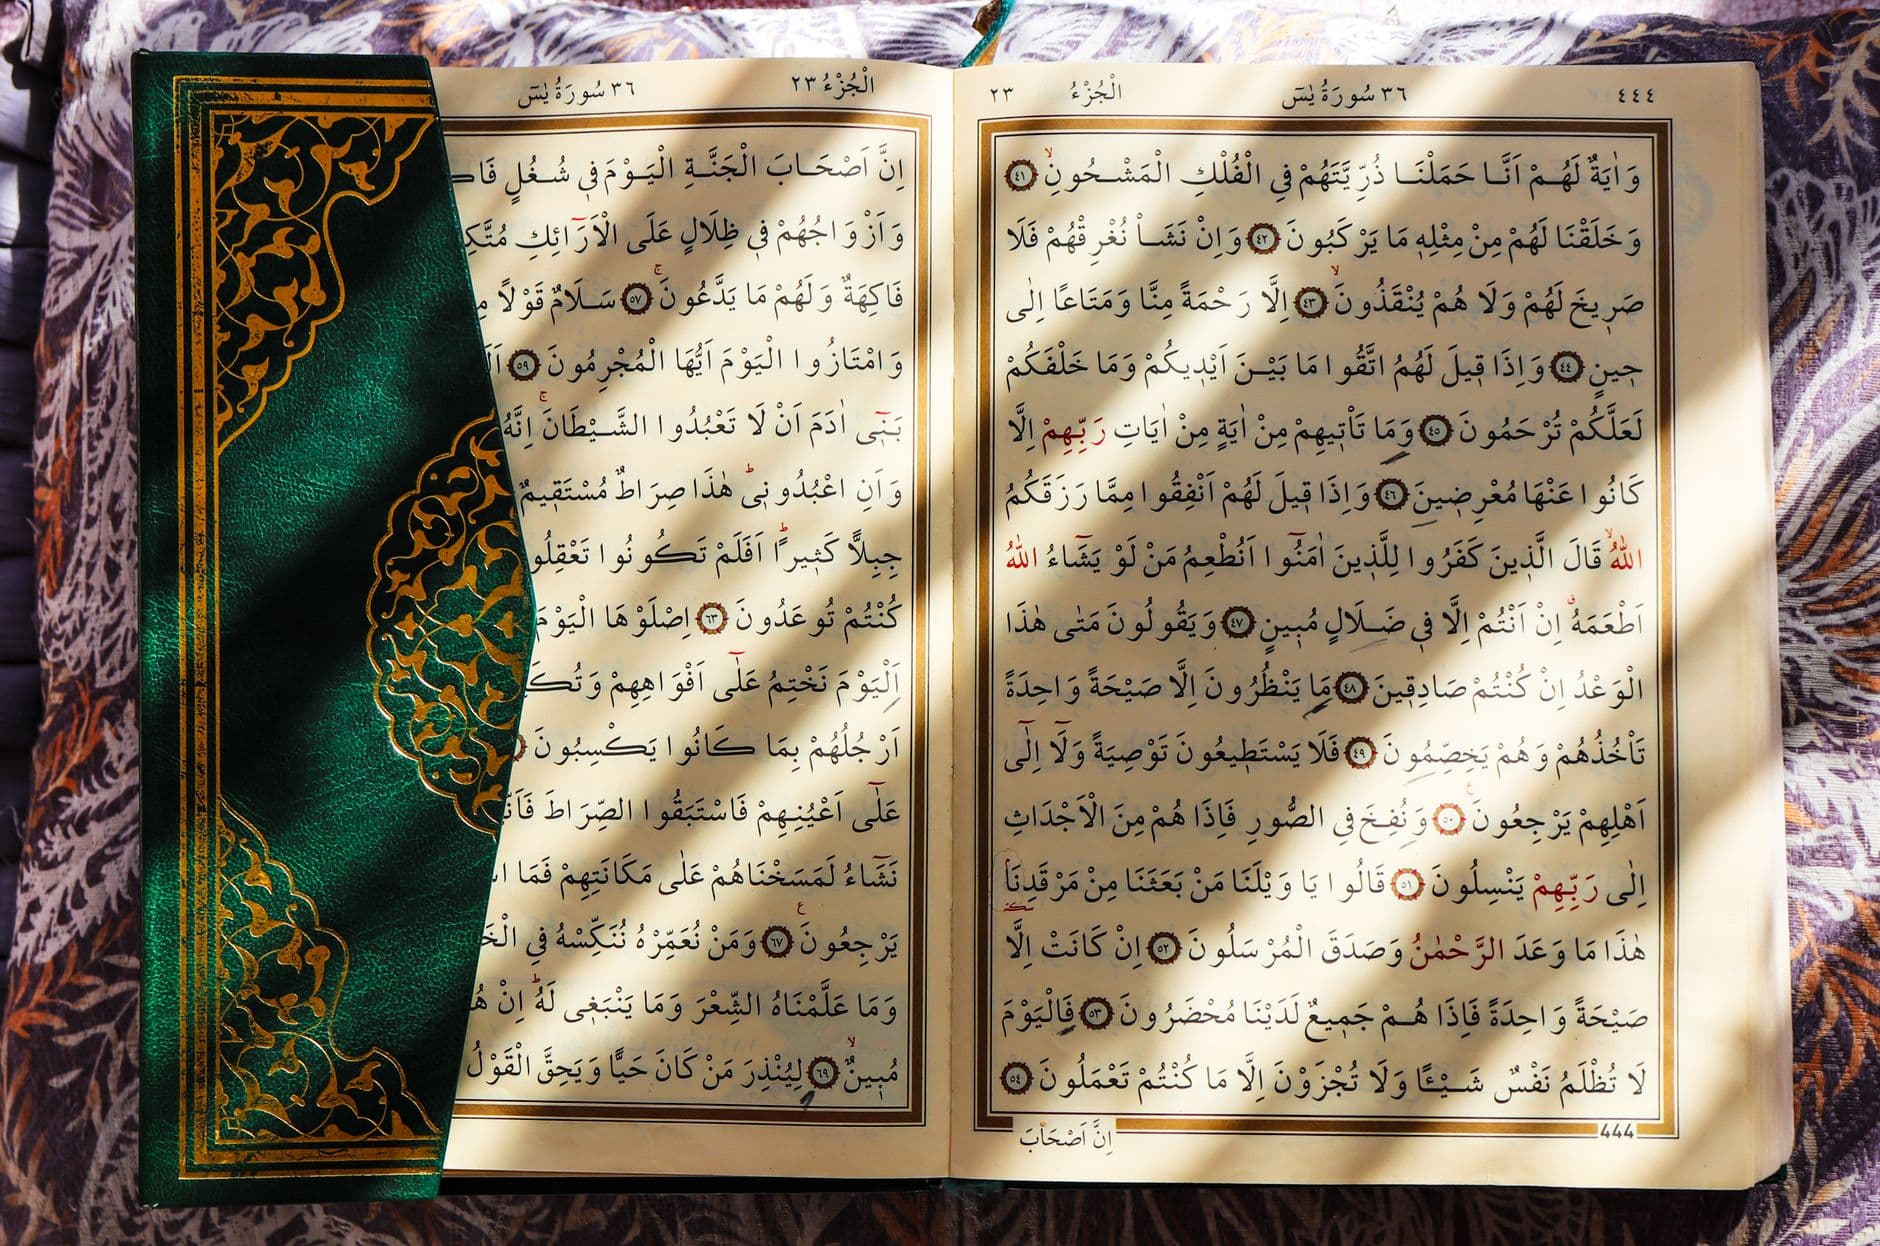 ٤٤٤ ٣٦ سُورَةُ يٰسٓ الْجُزْءُ ٢٣
وَاٰيَةٌ لَهُمْ اَنَّا حَمَلْنَا ذُرِّيَّتَهُمْ فِي الْفُلْكِ الْمَشْحُونِۙ ٤١
وَخَلَقْنَا لَهُمْ مِنْ مِثْلِهٖ مَا يَرْكَبُونَ ٤٢ وَاِنْ نَشَأْ نُغْرِقْهُمْ فَلَا
صَرٖيخَ لَهُمْ وَلَا هُمْ يُنْقَذُونَۙ ٤٣ اِلَّا رَحْمَةً مِنَّا وَمَتَاعًا اِلٰى
حٖينٍ ٤٤ وَاِذَا قٖيلَ لَهُمُ اتَّقُوا مَا بَيْنَ اَيْدٖيكُمْ وَمَا خَلْفَكُمْ
لَعَلَّكُمْ تُرْحَمُونَ ٤٥ وَمَا تَأْتٖيهِمْ مِنْ اٰيَةٍ مِنْ اٰيَاتِ رَبِّهِمْ اِلَّا
كَانُوا عَنْهَا مُعْرِضٖينَ ٤٦ وَاِذَا قٖيلَ لَهُمْ اَنْفِقُوا مِمَّا رَزَقَكُمُ
اللّٰهُۙ قَالَ الَّذٖينَ كَفَرُوا لِلَّذٖينَ اٰمَنُٓوا اَنُطْعِمُ مَنْ لَوْ يَشَٓاءُ اللّٰهُ
اَطْعَمَهُۗ اِنْ اَنْتُمْ اِلَّا فٖي ضَلَالٍ مُبٖينٍ ٤٧ وَيَقُولُونَ مَتٰى هٰذَا
الْوَعْدُ اِنْ كُنْتُمْ صَادِقٖينَ ٤٨ مَا يَنْظُرُونَ اِلَّا صَيْحَةً وَاحِدَةً
تَأْخُذُهُمْ وَهُمْ يَخِصِّمُونَ ٤٩ فَلَا يَسْتَطٖيعُونَ تَوْصِيَةً وَلَٓا اِلٰٓى
اَهْلِهِمْ يَرْجِعُونَ ٥٠ وَنُفِخَ فِي الصُّورِ فَاِذَا هُمْ مِنَ الْاَجْدَاثِ
اِلٰى رَبِّهِمْ يَنْسِلُونَ ٥١ قَالُوا يَا وَيْلَنَا مَنْ بَعَثَنَا مِنْ مَرْقَدِنَا
هٰذَا مَا وَعَدَ الرَّحْمٰنُ وَصَدَقَ الْمُرْسَلُونَ ٥٢ اِنْ كَانَتْ اِلَّا
صَيْحَةً وَاحِدَةً فَاِذَا هُمْ جَمٖيعٌ لَدَيْنَا مُحْضَرُونَ ٥٣ فَالْيَوْمَ
لَا تُظْلَمُ نَفْسٌ شَيْـًٔا وَلَا تُجْزَوْنَ اِلَّا مَا كُنْتُمْ تَعْمَلُونَ ٥٤
444 اِنَّ اَصْحَابَ
الْجُزْءُ ٢٣ ٣٦ سُورَةُ يٰسٓ
اِنَّ اَصْحَابَ الْجَنَّةِ الْيَوْمَ فٖي شُغُلٍ
وَاَزْوَاجُهُمْ فٖي ظِلَالٍ عَلَى الْاَرَٓائِكِ
فَاكِهَةٌ وَلَهُمْ مَا يَدَّعُونَۚ ٥٧ سَلَامٌ قَوْلًا
وَامْتَازُوا الْيَوْمَ اَيُّهَا الْمُجْرِمُونَ ٥٩
بَنٖٓي اٰدَمَ اَنْ لَا تَعْبُدُوا الشَّيْطَانَۚ اِنَّهُ
وَاَنِ اعْبُدُونٖيؕ هٰذَا صِرَاطٌ مُسْتَقٖيمٌ
جِبِلًّا كَثٖيرًاؕ اَفَلَمْ تَكُونُوا
كُنْتُمْ تُوعَدُونَ ٦٣ اِصْلَوْهَا الْيَوْمَ
اَلْيَوْمَ نَخْتِمُ عَلٰٓى اَفْوَاهِهِمْ
اَرْجُلُهُمْ بِمَا كَانُوا يَكْسِبُونَ
عَلٰٓى اَعْيُنِهِمْ فَاسْتَبَقُوا الصِّرَاطَ
نَشَٓاءُ لَمَسَخْنَاهُمْ عَلٰى مَكَانَتِهِمْ فَمَا
يَرْجِعُونَ ٦٧ وَمَنْ نُعَمِّرْهُ نُنَكِّسْهُ فِي
وَمَا عَلَّمْنَاهُ الشِّعْرَ وَمَا يَنْبَغٖي لَهُؕ اِنْ
مُبٖينٌۙ ٦٩ لِيُنْذِرَ مَنْ كَانَ حَيًّا وَيَحِقَّ الْقَوْلُ